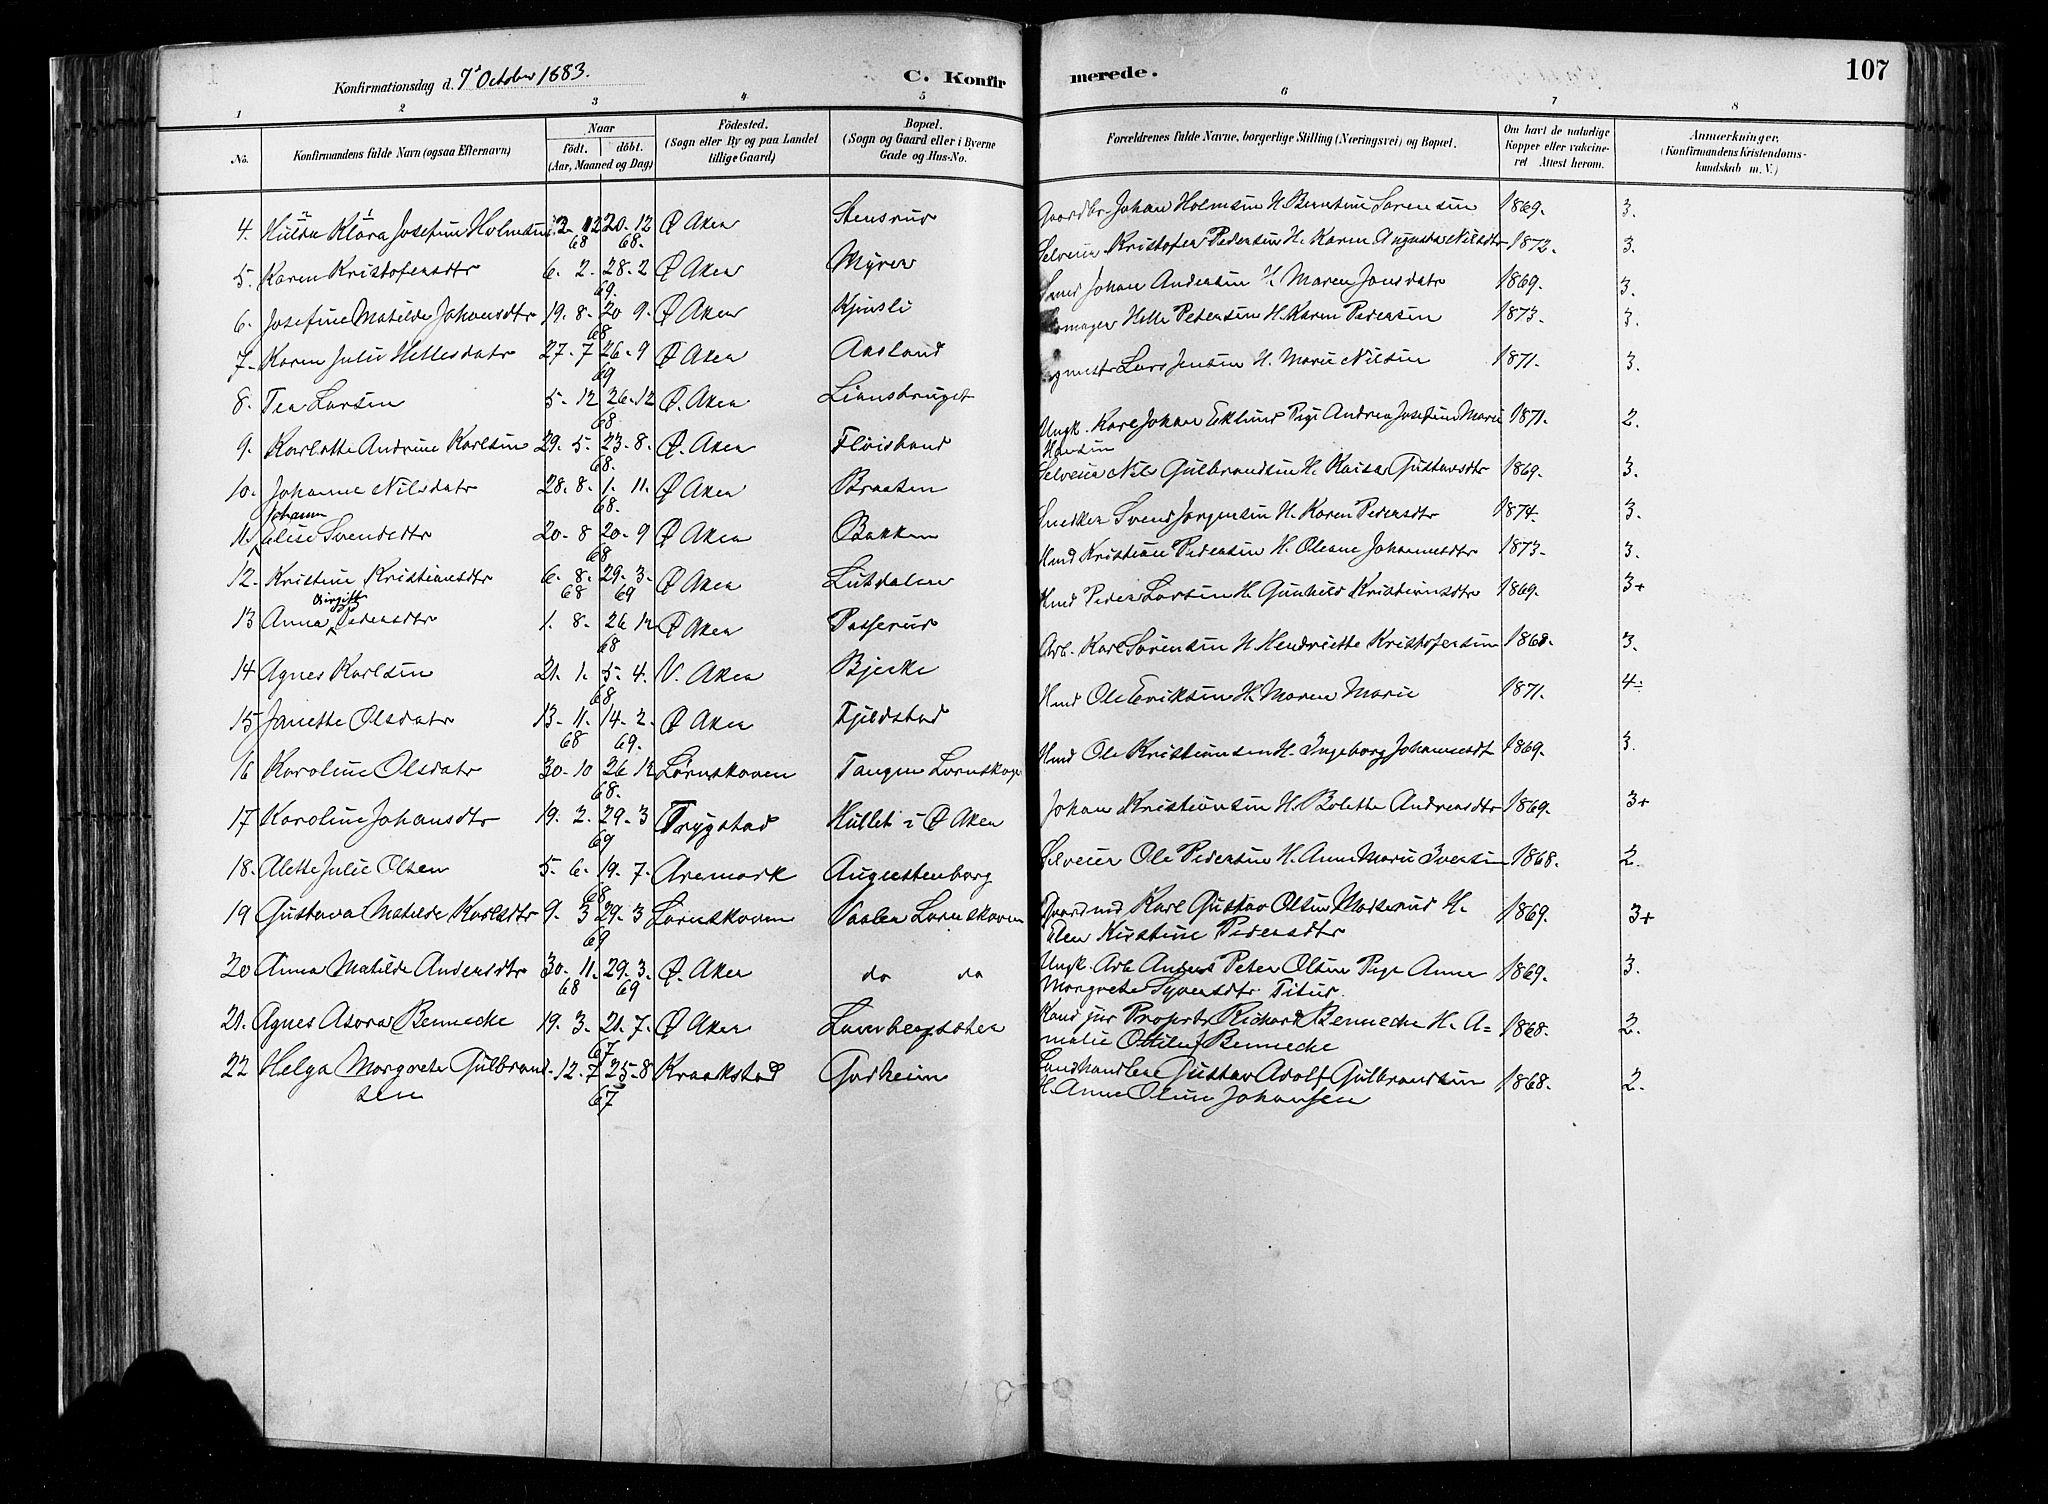 Konfirmationsdag d. 7d October 1883.
C. Konfir
merede.
107
1 2 3 4 5 6 7 8
No.
Konfirmandens fulde Navn (ogsaa Efternavn)
Naar
födt. döbt.
(Aar, Maaned og Dag)
Födested.
(Sogn eller By og paa Landet
tillige Gaard)
Bopæl.
(Sogn og Gaard eller i Byerne
Gade og Hus-No.
Forældrenes fulde Navne, borgerlige Stilling (Næringsvei) og Bopæl.
Om havt de naturlige
Kopper eller vakcine-
ret Attest herom.
Anmærkninger,
(Konfirmandens Kristendoms-
kundskab m. V.)
4. Hulda Klara Josefine Holmsen 20. 12 68. Ø Aker Stensrud Gaardbr. Johan Holmsen H. Berntine Sørensen 1869. 3.
5. Karen Kristofersdtr 6. 2. 28. 2 69. Ø Aker Myrer Selveier Kristofer Pedersen H. Karen Augusta Nilsdtr 1873. 3.
6. Josefine Matilde Johansdtr 19. 8. 20 9. 68 Ø Aker Kjensli Johan Andersen H. Maren Jonsdatr 1869. 3.
7. Karen Julie Hellesdatr 27. 7 26. 9 69 Ø Aker Aasland Helle Petersen H. Karen Pedersen 1873. 3.
8. Tea Larsen 5. 12 26. 12 68 Ø. Aker Liansbruget Lars Jensen H. Marie Nilsen 1871. 3.
9. Karlotte Andrine Karlsen 29. 5. 23. 8. 68. Ø. Aker Fløisbond Ungk. Karl Johan Eklund Pige Andrea Josefine Marie
Hansen 1871. 2.
10. Johanne Nilsdatr 28. 8. 1. 11. 68. Ø Aker Braaten Selveier Nils Gulbrandsen H. Kaisa Gustavsdtr 1869. 3.
11. Elise Johanne Svendsdtr 20. 8 20. 9 68 Ø Aker Bakken Snedker Svend Jørgensen H. Karen Pedersdtr 1874. 3.
12. Kristine Kristiansdtr 6. 8. 68 29. 3. 69 Ø Aker Lusdalen Hmd Kristian Pedersen H. Olesne Johannesdtr 1873. 3.
13 Anna Birgitte Pedersdtr 1. 8. 26 12 68 Ø Aker Passerud Hmd Peder Larsen H. Gunhild Kristiansdtr 1869. 3+
14 Agnes Karlsen 21. 1. 5. 4. 68 V. Aker Bjerke Arb. Karl Sørensen H. Hendriette Kristofersen 1868. 3.
15 Janette Olsdatr 13. 11. 68 14. 2. 69. Ø Aker Fjeldstad Hmd Ole Eriksen H. Maren Marie 1871. 4.
16 Karoline Olsdatr 30. 10 26 12 68. Lørenskoven Tangen Lørenskogen Hmd Ole Kristiansen H. Ingeborg Johannesdt 1869. 3.
17 Karoline Johansdtr 19. 2. 29. 3 69 Trygstad Hullet i Ø Aker Johan Kristiansen H. Bolette Andreasdtr 1869. 3+
18. Alette Julie Olsen 5. 6. 19. 7. 68 Aremark Augustenborg Selveier Ole Pedersen H. Anne Marie Iversen 1868. 2.
19 Gustava Matilde Karlsdtr 9. 3 29. 3 69 Lørenskoven Vaalen Lørenskoven Gaardmd Karl Gustav Olsen Mosserud H.
Elen Kirstine Pedersdtr 1869. 3+
20 Anna Matilde Andersdtr 30. 11. 68 29. 3. 69 Ø. Aker do do Ungk. Arb. Anders Peter Olsen Pige Anne
Margrete Syversdtr Titus. 1869. 3.
21. Agnes Asora Bennecke 19. 3. 21. 7. 67 Ø Aker Kand jur Propr. Richard Bennecke H. A=
malie Ottiluf Bennecke 1868. 2.
22 Helga Margrete Gulbrand-
sen 12. 7 25. 8 67 Kraakstad Godheim Landhandler Gustav Adolf Gulbrandsen
H. Anne Oline Johansen 1868. 2.